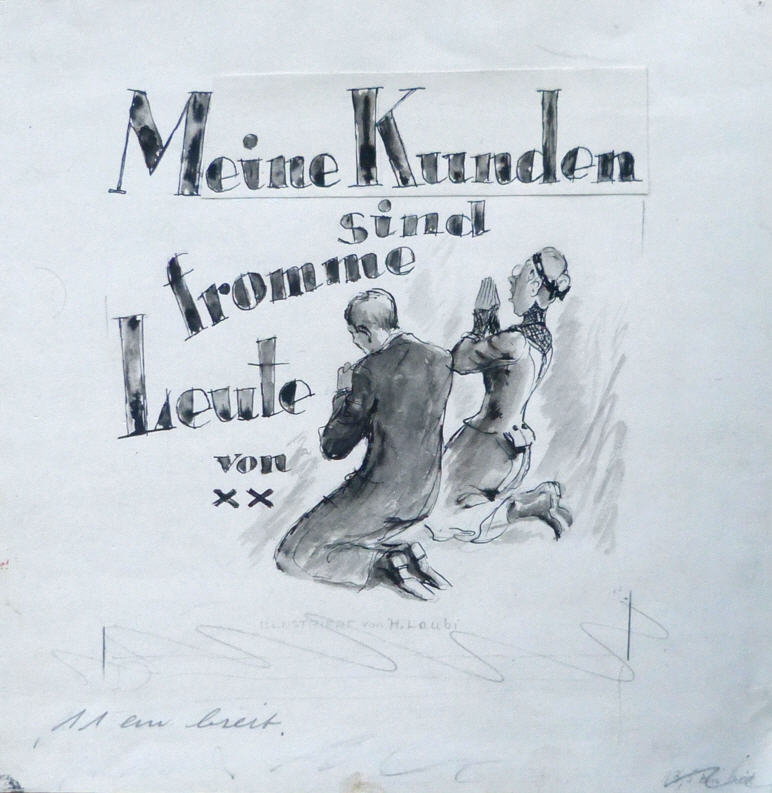 Meine Kunden
sind
fromme
Leute
von
XX
ILLUSTRIERT von H. Laubi
11 cm breit.